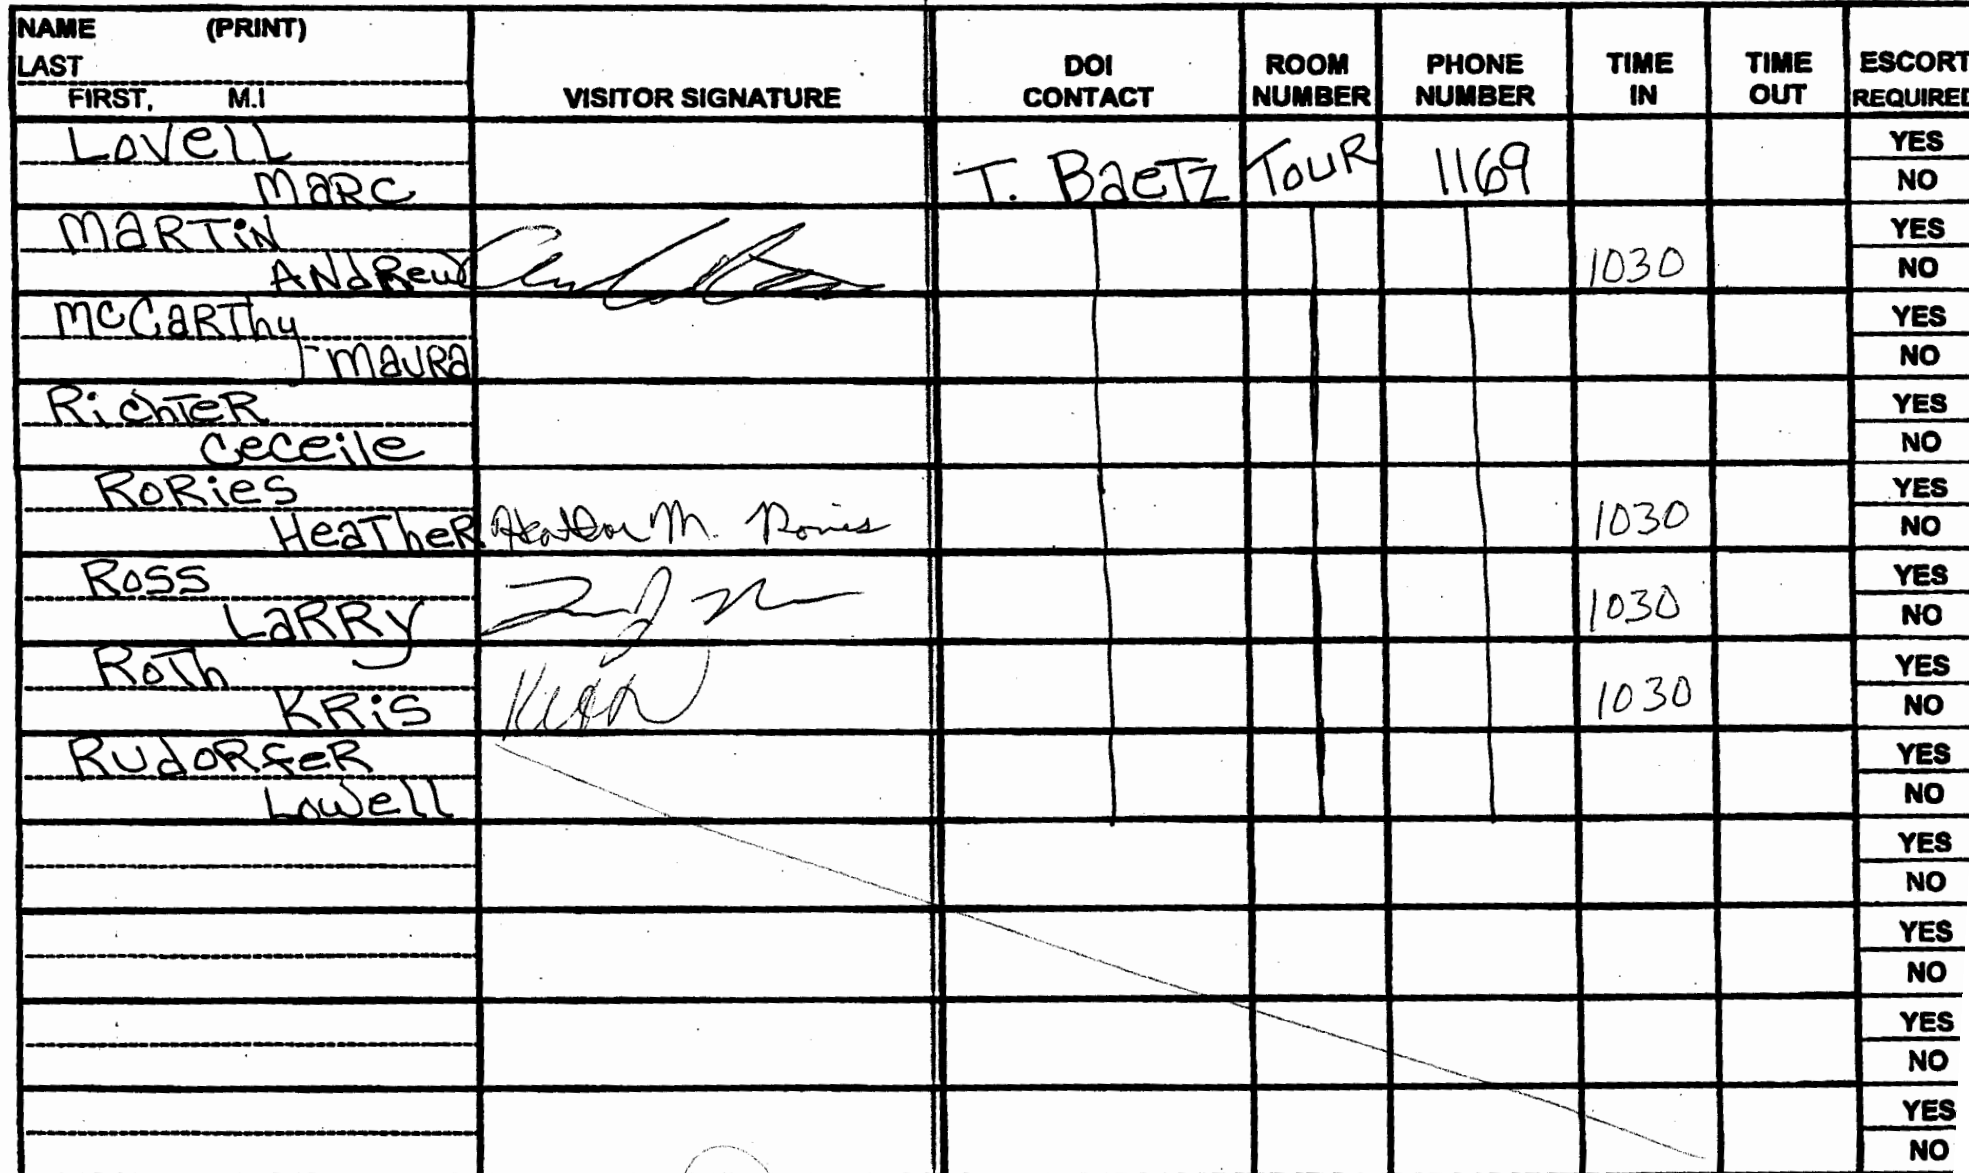 NAME (PRINT)
LAST
FIRST, M.I
VISITOR SIGNATURE
DOI CONTACT
ROOM NUMBER
PHONE NUMBER
TIME IN
TIME OUT
ESCORT REQUIRED
Lovell
Marc
T. Baetz
Tour
1169
YES
NO
Martin
Andrew
1030
YES
NO
McCarthy
Maura
YES
NO
Richter
Ceceile
YES
NO
Rories
Heather
Heather M. Rories
1030
YES
NO
Ross
Larry
1030
YES
NO
Roth
Kris
1030
YES
NO
Rudorfer
Lowell
YES
NO
YES
NO
YES
NO
YES
NO
YES
NO